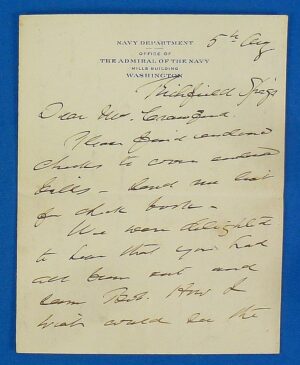 NAVY DEPARTMENT
OFFICE OF
THE ADMIRAL OF THE NAVY
MILLS BUILDING
WASHINGTON
5th Aug
Richfield Spgs
Dear Mr. Crawford.
Please find enclosed
checks to cover enclosed
bills - Send me list
for check book -
We were delighted
to hear that you had
all been out and
seen Bob. How I
wish could see the